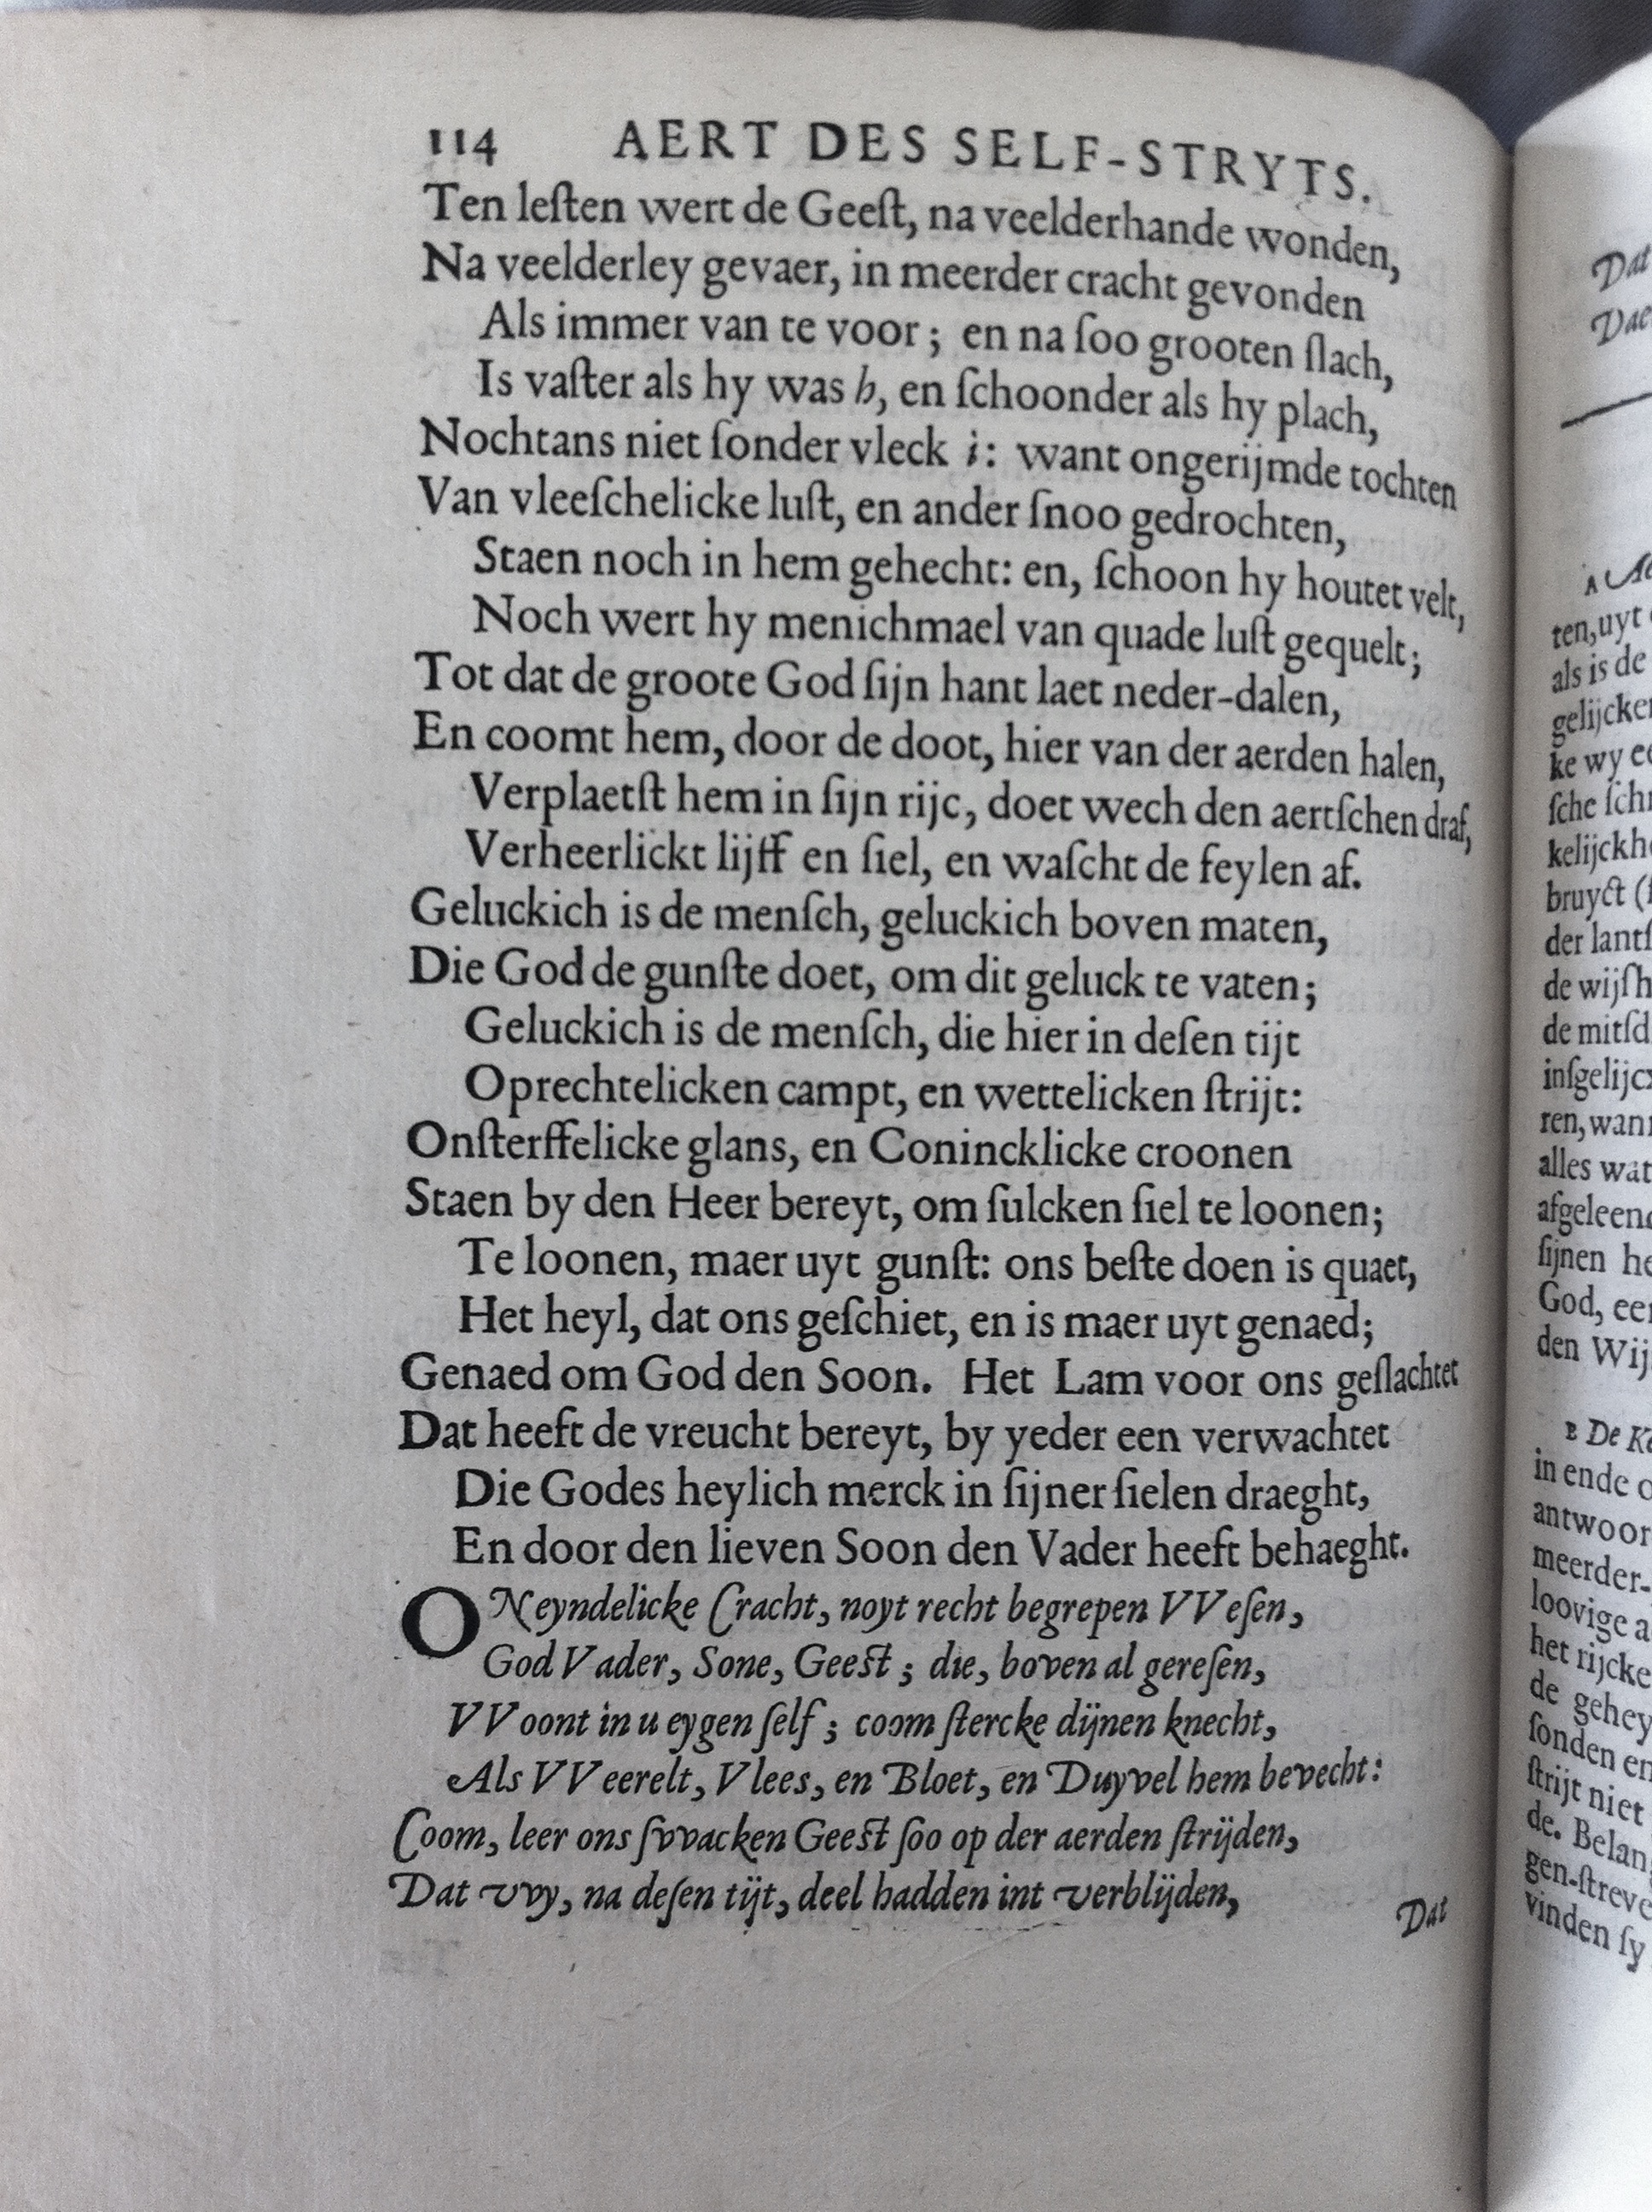 114 AERT DES SELF-STRYTS.
Ten leſten wert de Geeſt, na veelderhande wonden,
Na veelderley gevaer, in meerder cracht gevonden
Als immer van te voor; en na ſoo grooten ſlach,
Is vaſter als hy was h, en ſchoonder als hy plach,
Nochtans niet ſonder vleck i: want ongerijmde tochten
Van vleeſchelicke luſt, en ander ſnoo gedrochten,
Staen noch in hem gehecht: en, ſchoon hy houtet velt,
Noch wert hy menichmael van quade luſt gequelt;
Tot dat de groote God ſijn hant laet neder-dalen,
En coomt hem, door de doot, hier van der aerden halen,
Verplaetſt hem in ſijn rijc, doet wech den aertſchen draf,
Verheerlickt lijff en ſiel, en waſcht de feylen af.
Geluckich is de menſch, geluckich boven maten,
Die God de gunſte doet, om dit geluck te vaten;
Geluckich is de menſch, die hier in deſen tijt
Oprechtelicken campt, en wettelicken ſtrijt:
Onſterffelicke glans, en Conincklicke croonen
Staen by den Heer bereyt, om ſulcken ſiel te loonen;
Te loonen, maer uyt gunſt: ons beſte doen is quaet,
Het heyl, dat ons geſchiet, en is maer uyt genaed;
Genaed om God den Soon. Het Lam voor ons geſlachtet
Dat heeft de vreucht bereyt, by yeder een verwachtet
Die Godes heylich merck in ſijner ſielen draeght,
En door den lieven Soon den Vader heeft behaeght.
ONeyndelicke Cracht, noyt recht begrepen VVeſen,
God Vader, Sone, Geeſt; die, boven al gereſen,
VVoont in u eygen ſelf; coom ſtercke dijnen knecht,
Als VVeerelt, Vlees, en Bloet, en Duyvel hem bevecht:
Coom, leer ons ſvvacken Geeſt ſoo op der aerden ſtrijden,
Dat vvy, na deſen tijt, deel hadden int verblijden,
Dat
Dat
Dae
A
ten, uyt
als is de
gelijcke
ke wy e
ſche ſch
kelijckh
bruyct (
der lantſ
de wijſh
de mitſd
inſgelijc
ren, wan
alles wat
afgeleen
ſijnen he
God, ee
den Wij
B De K
in ende o
antwoor
meerder-
loovige a
het rijcke
de gehey
ſonden en
ſtrijt niet
de. Belan
gen-ſtreve
vinden ſy